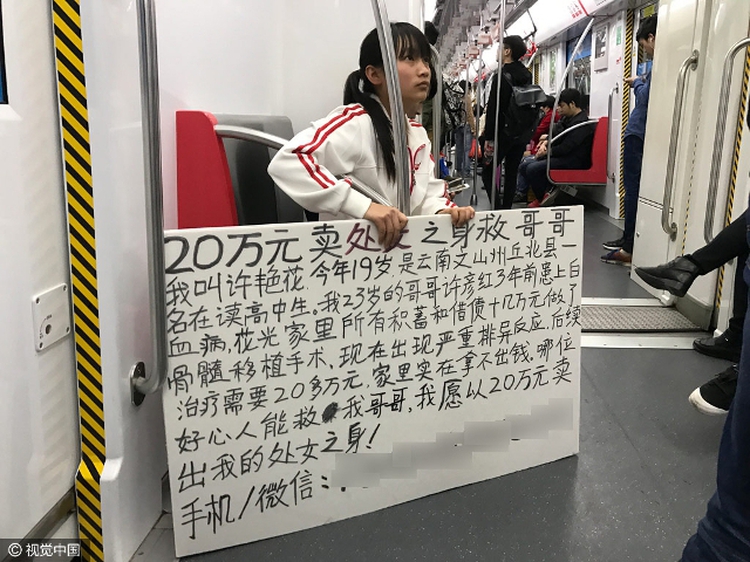 20万元卖处女之身救哥哥
我叫许艳花,今年19岁是云南文山州丘北县一
名在读高中生。我23岁的哥哥许彦红3年前患上白
血病,花光家里所有积蓄和借债十几万元做了
骨髓移植手术、现在出现严重排异反应,后续
治疗需要20多万元,家里实在拿不出钱、哪位
好心人能救我哥哥,我愿以20万元卖
出我的处女之身!
手机/微信:
©视觉中国